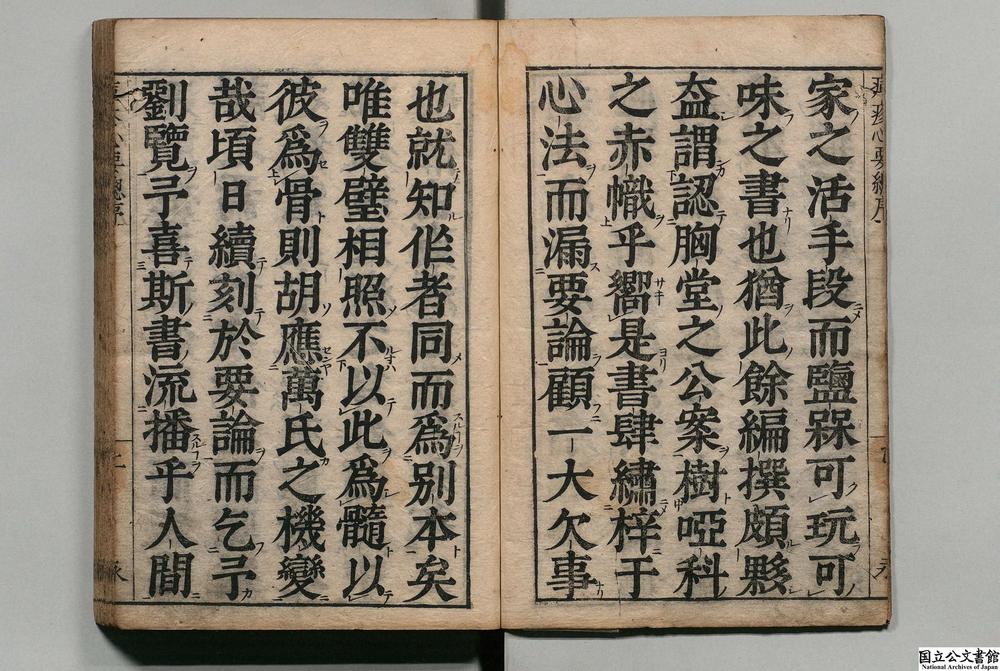 家之活手段而鹽槑可玩可
味之書也猶此餘編撰頗夥
盍謂認胸堂之公案樹啞科
之赤幟乎嚮是書肆繡梓于
心法而漏要論顧一大欠事
也就知作者同而爲別本矣
唯雙璧相照不以此爲髓以
彼爲骨則胡應萬氏之機變
哉頃日續刻於要論而乞予
劉覽予喜斯書流播乎人間
国立公文書館
National Archives of Japan